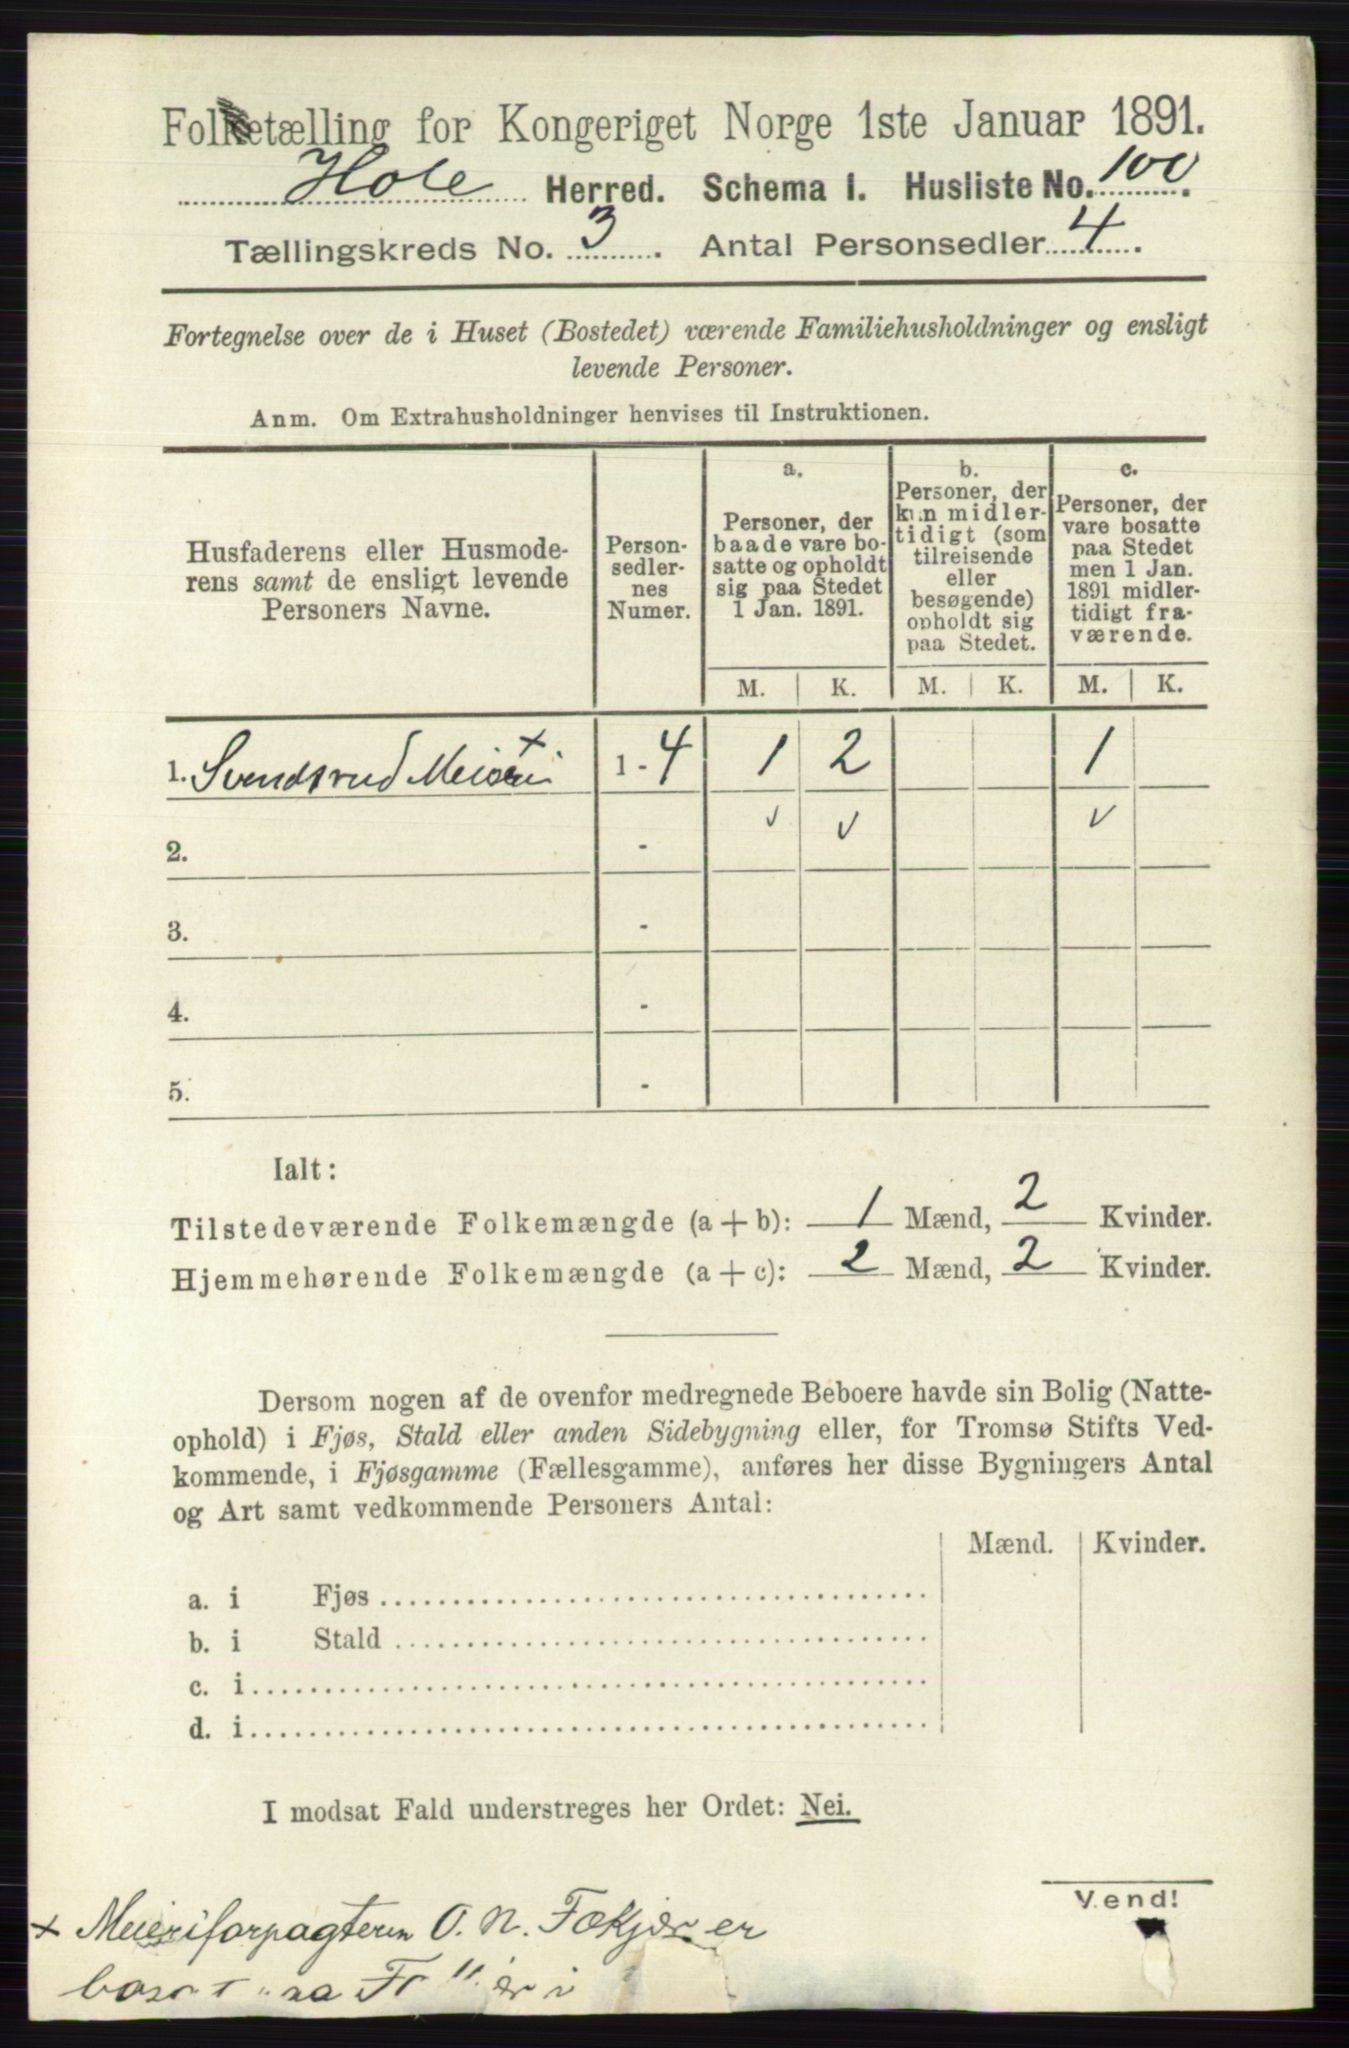 Folketælling for Kongeriget Norge 1ste Januar 1891.
Hole Herred. Schema I. Husliste No. 100.
Tællingskreds No. 3. Antal Personsedler 4.
Fortegnelse over de i Huset (Bostedet) værende Familiehusholdninger og ensligt
levende Personer.
Anm. Om Extrahusholdninger henvises til Instruktionen.
Husfaderens eller Husmode-
rens samt de ensligt levende
Personers Navne.
Person-
sedler-
nes
Numer.
a.
Personer, der
baade vare bo-
satte og opholdt
sig paa Stedet
1 Jan. 1891.
b.
Personer, der
kun midler-
tidigt (som
tilreisende
eller
besøgende)
opholdt sig
paa Stedet.
c.
Personer, der
vare bosatte
paa Stedet
men 1 Jan.
1891 midler-
tidigt fra-
værende.
M. K. M. K. M. K.
1. Svendsrud Meieri x 1 - 4 1 2 1
v v v
2. -
3. -
4. -
5. -
Ialt:
Tilstedeværende Folkemængde (a + b): 1 Mænd, 2 Kvinder.
Hjemmehørende Folkemængde (a + c): 2 Mænd, 2 Kvinder.
Dersom nogen af de ovenfor medregnede Beboere havde sin Bolig (Natte-
ophold) i Fjøs, Stald eller anden Sidebygning eller, for Tromsø Stifts Ved-
kommende, i Fjøsgamme (Fællesgamme), anføres her disse Bygningers Antal
og Art samt vedkommende Personers Antal:
Mænd. Kvinder.
a. i Fjøs
b. i Stald
c. i
d. i
I modsat Fald understreges her Ordet: Nei.
Vend!
x Meieriforpagteren O. N. Fækjær er